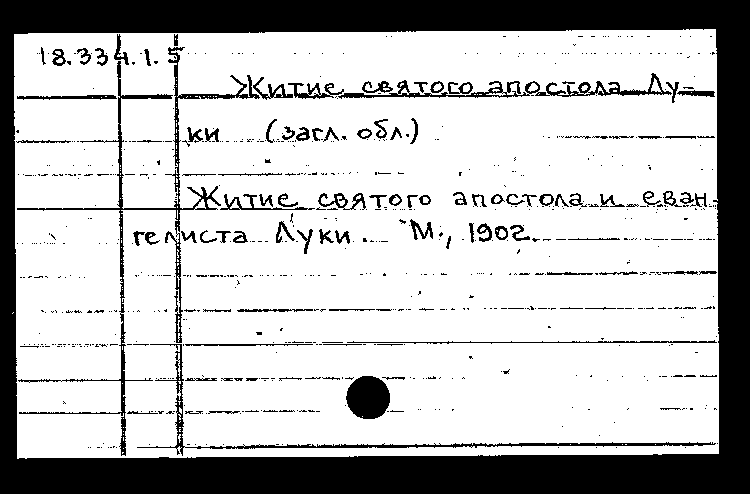 18.334.1.5
Житие святого апостола Лу-
ки (загл. обл.)
Житие святого апостола и еван-
гелиста Луки. М., 1902.